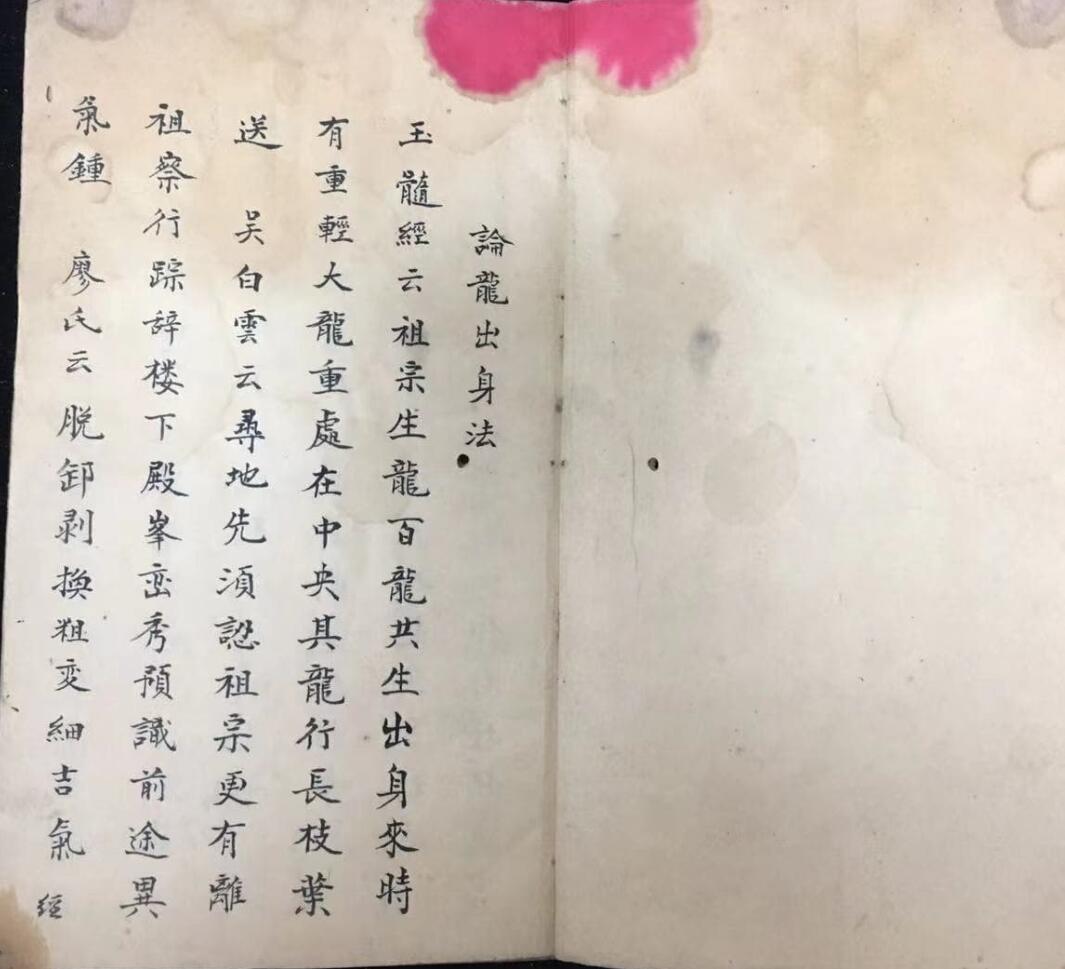 論龍出身法
玉髓經云祖宗生龍百龍共生出身來時
有重輕大龍重處在中央其龍行長枝葉
送　吴白雲云尋地先湏認祖宗更有離
祖察行踪辞楼下殿峯峦秀預識前途異
氣鍾　廖氏云脱卸剥換粗变細吉氣
經